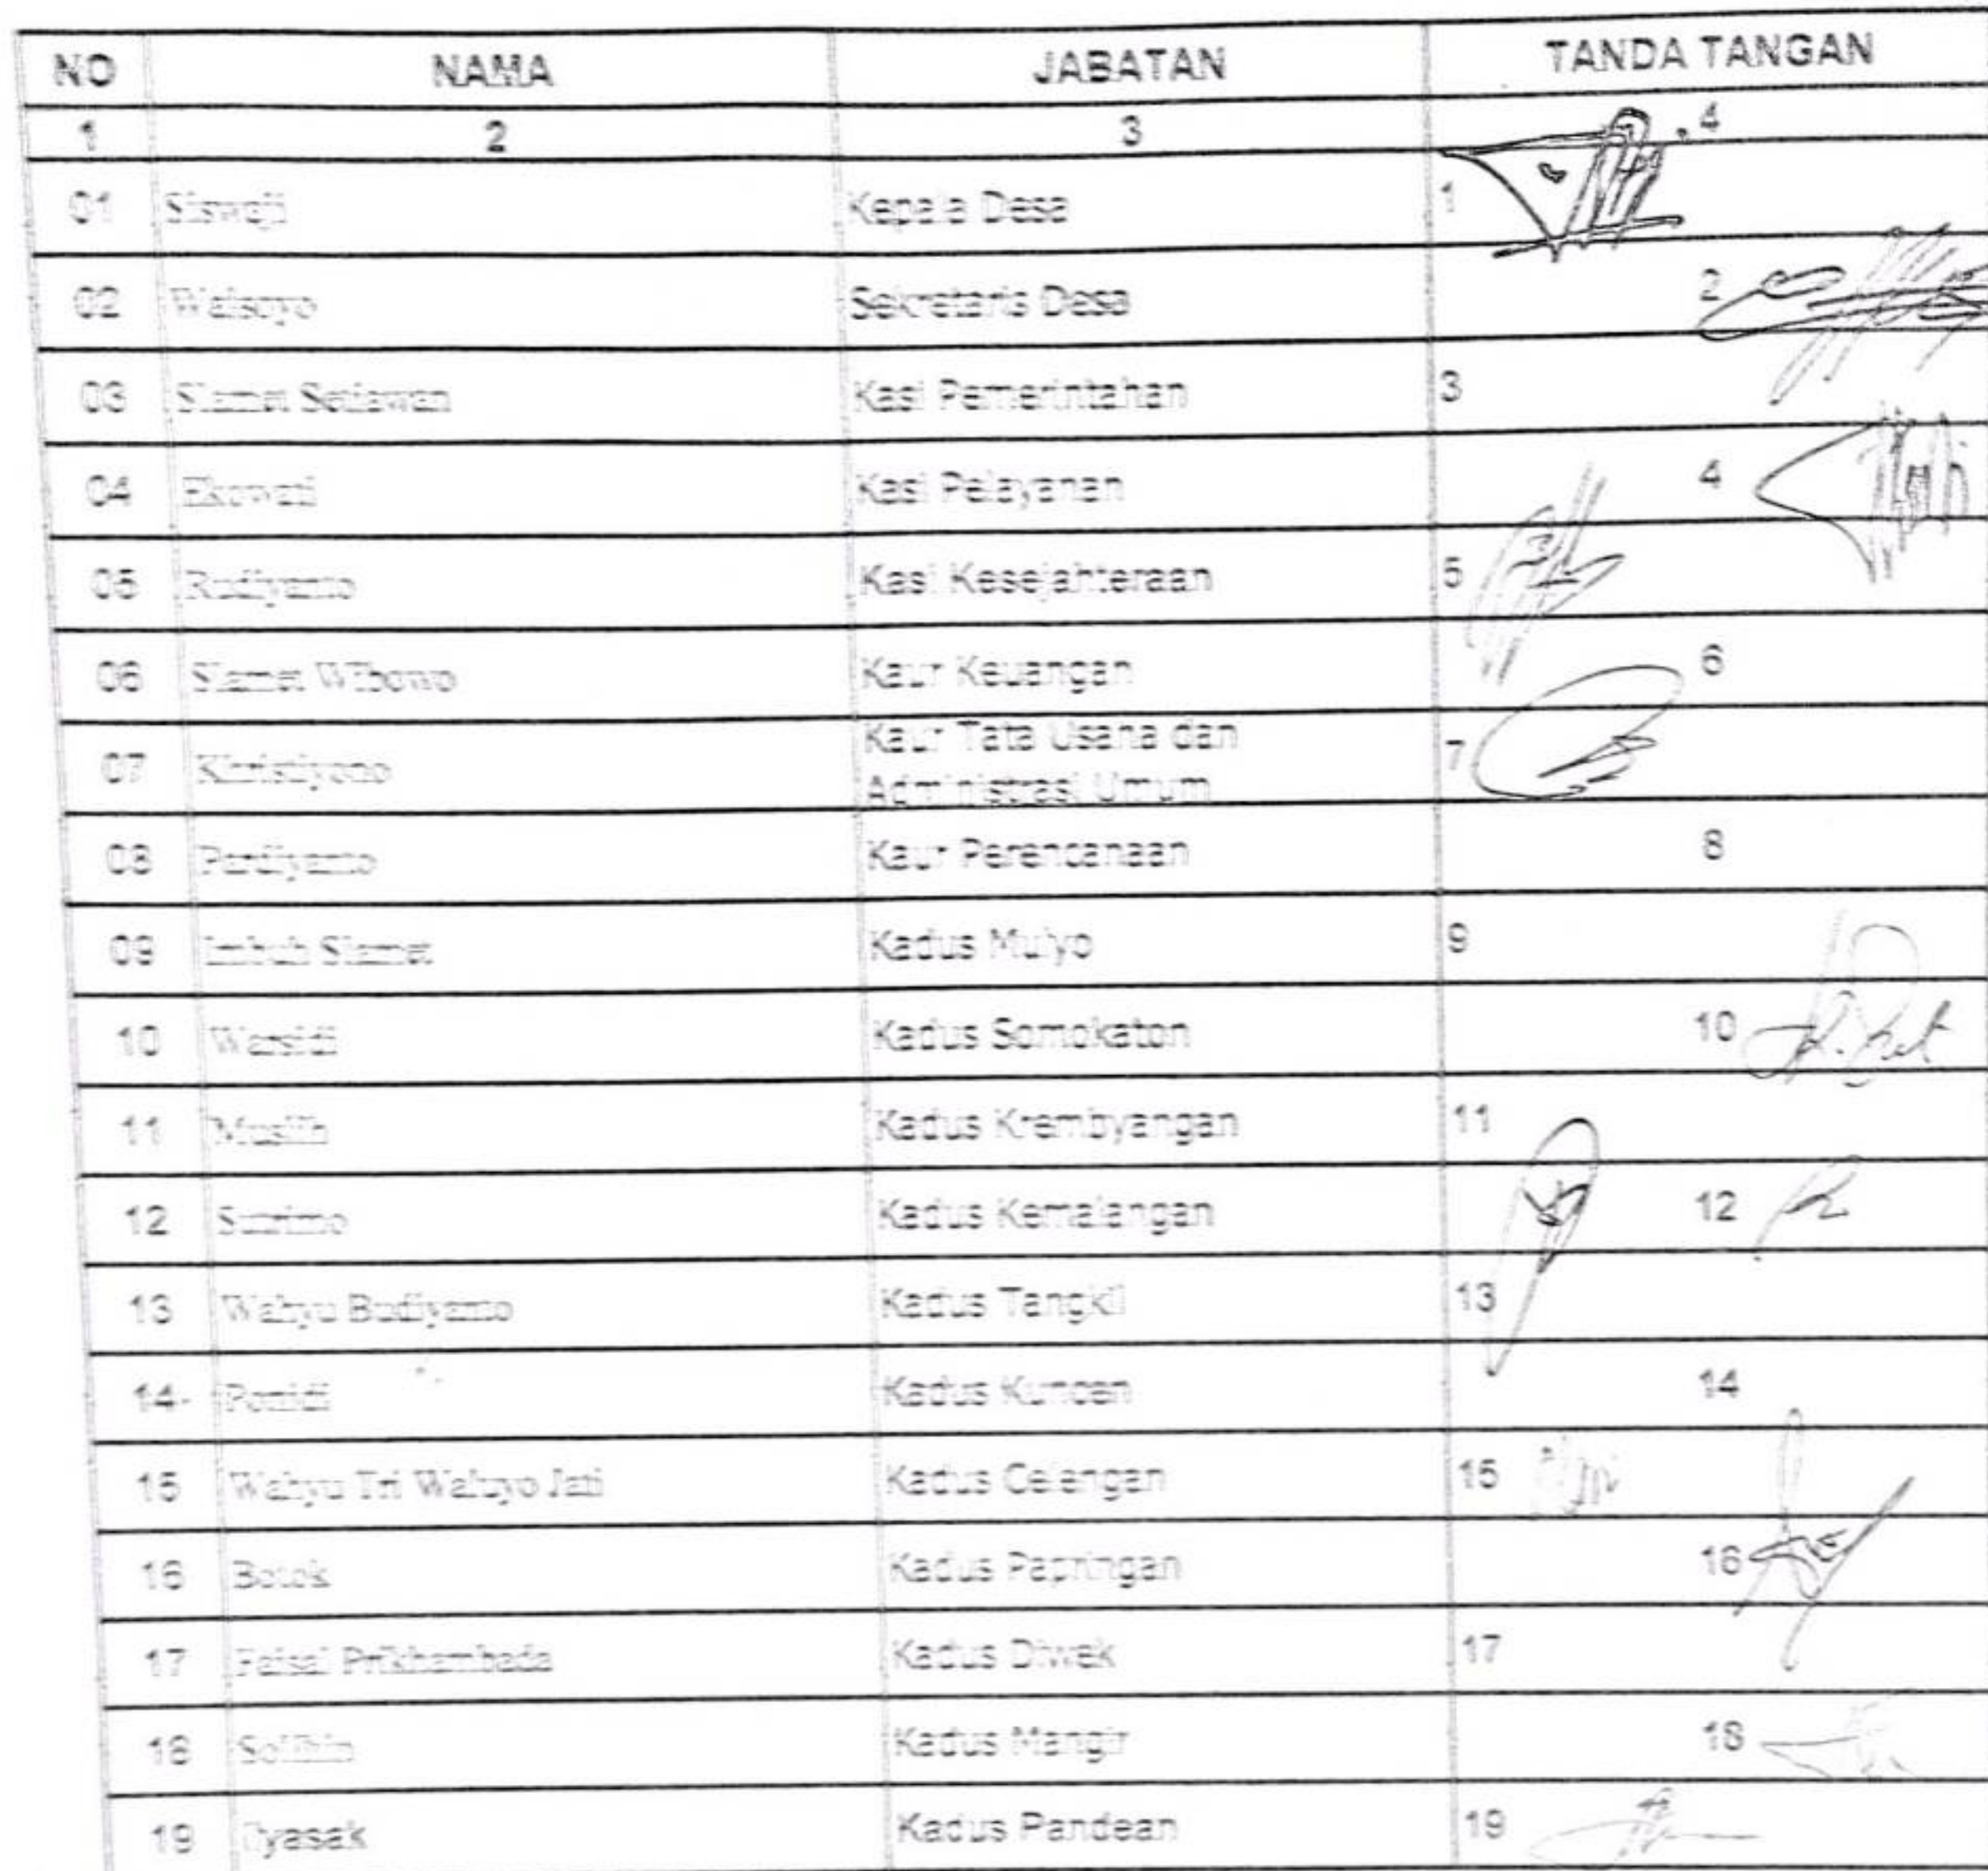 NO NAMA JABATAN TANDA TANGAN
1 2 3 4
01 Siswoji Kepala Desa 1
02 Walsoyo Sekretaris Desa 2
03 Slamet Setiawan Kasi Pemerintahan 3
04 Ekowati Kasi Pelayanan 4
05 Rudiyanto Kasi Kesejahteraan 5
06 Slamet Wibowo Kaur Keuangan 6
07 Khristiyono Kaur Tata Usaha dan
Administrasi Umum 7
08 Pardiyanto Kaur Perencanaan 8
09 Imbuh Slamet Kadus Mulyo 9
10 Warsidi Kadus Somokaton 10
11 Muslih Kadus Krembyangan 11
12 Kadus Kemalangan 12
13 Wahyu Budiyanto Kadus Tangkil 13
14 Ponidi Kadus Kuncen 14
15 Wahyu Tri Waluyo Jati Kadus Celengan 15
16 Botok Kadus Papringan 16
17 Faisal Prikhambada Kadus Diwek 17
18 Solihin Kadus Mangir 18
19 Ilyasak Kadus Pandean 19